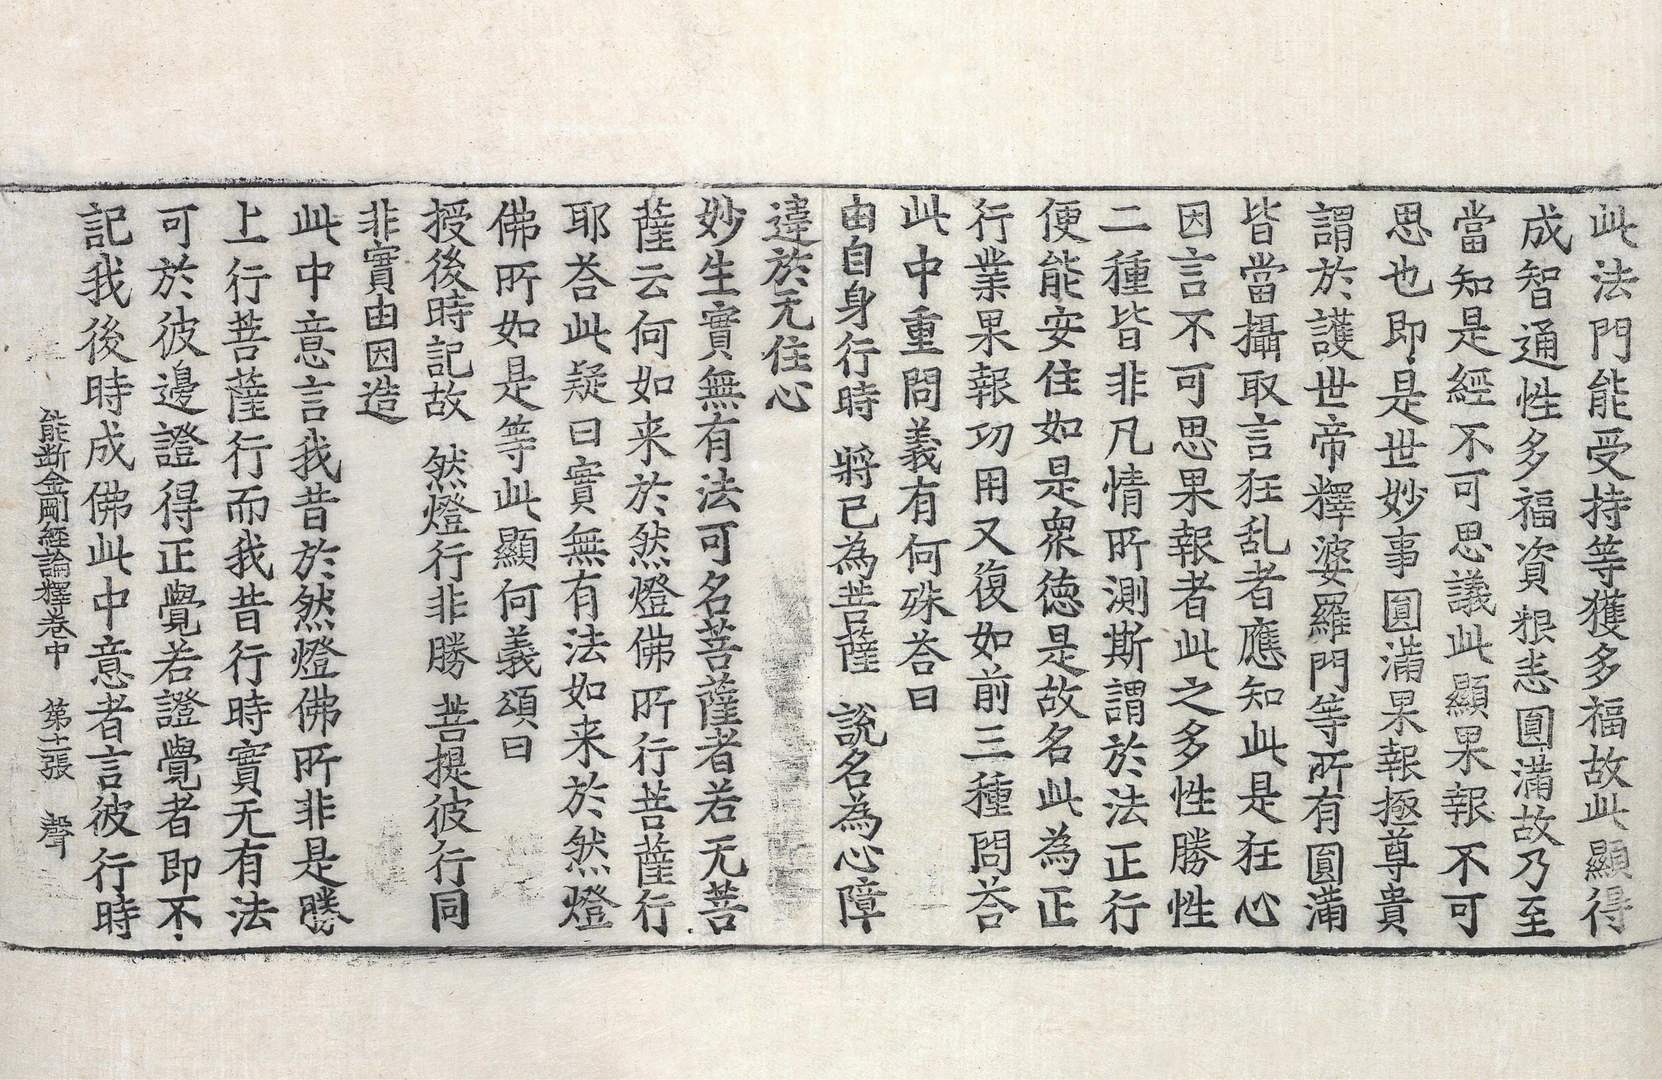 此法門能受持等獲多福故此顯得
成智通性多福資粮悉圓滿故乃至
當知是經不可思議此顯果報不可
思也即是世妙事圓滿果報極尊貴
謂於護世帝釋婆羅門等所有圓滿
皆當攝取言狂乱者應知此是狂心
因言不可思果報者此之多性勝性
二種皆非凡情所測斯謂於法正行
便能安住如是衆徳是故名此為正
行業果報㓛用又復如前三種問荅
此中重問義有何殊荅曰
由自身行時 將已為菩薩 說名為心障
違於无住心
妙生實無有法可名菩薩者若无菩
薩云何如来於然燈佛所行菩薩行
耶荅此疑曰實無有法如来於然燈
佛所如是等此顯何義頌曰
授後時記故 然燈行非勝 菩提彼行同
非實由因造
此中意言我昔於然燈佛所非是勝
上行菩薩行而我昔行時實无有法
可於彼邊證得正覺若證覺者即不
記我後時成佛此中意者言彼行時
能断金剛經論釋卷中 第十二張 聲